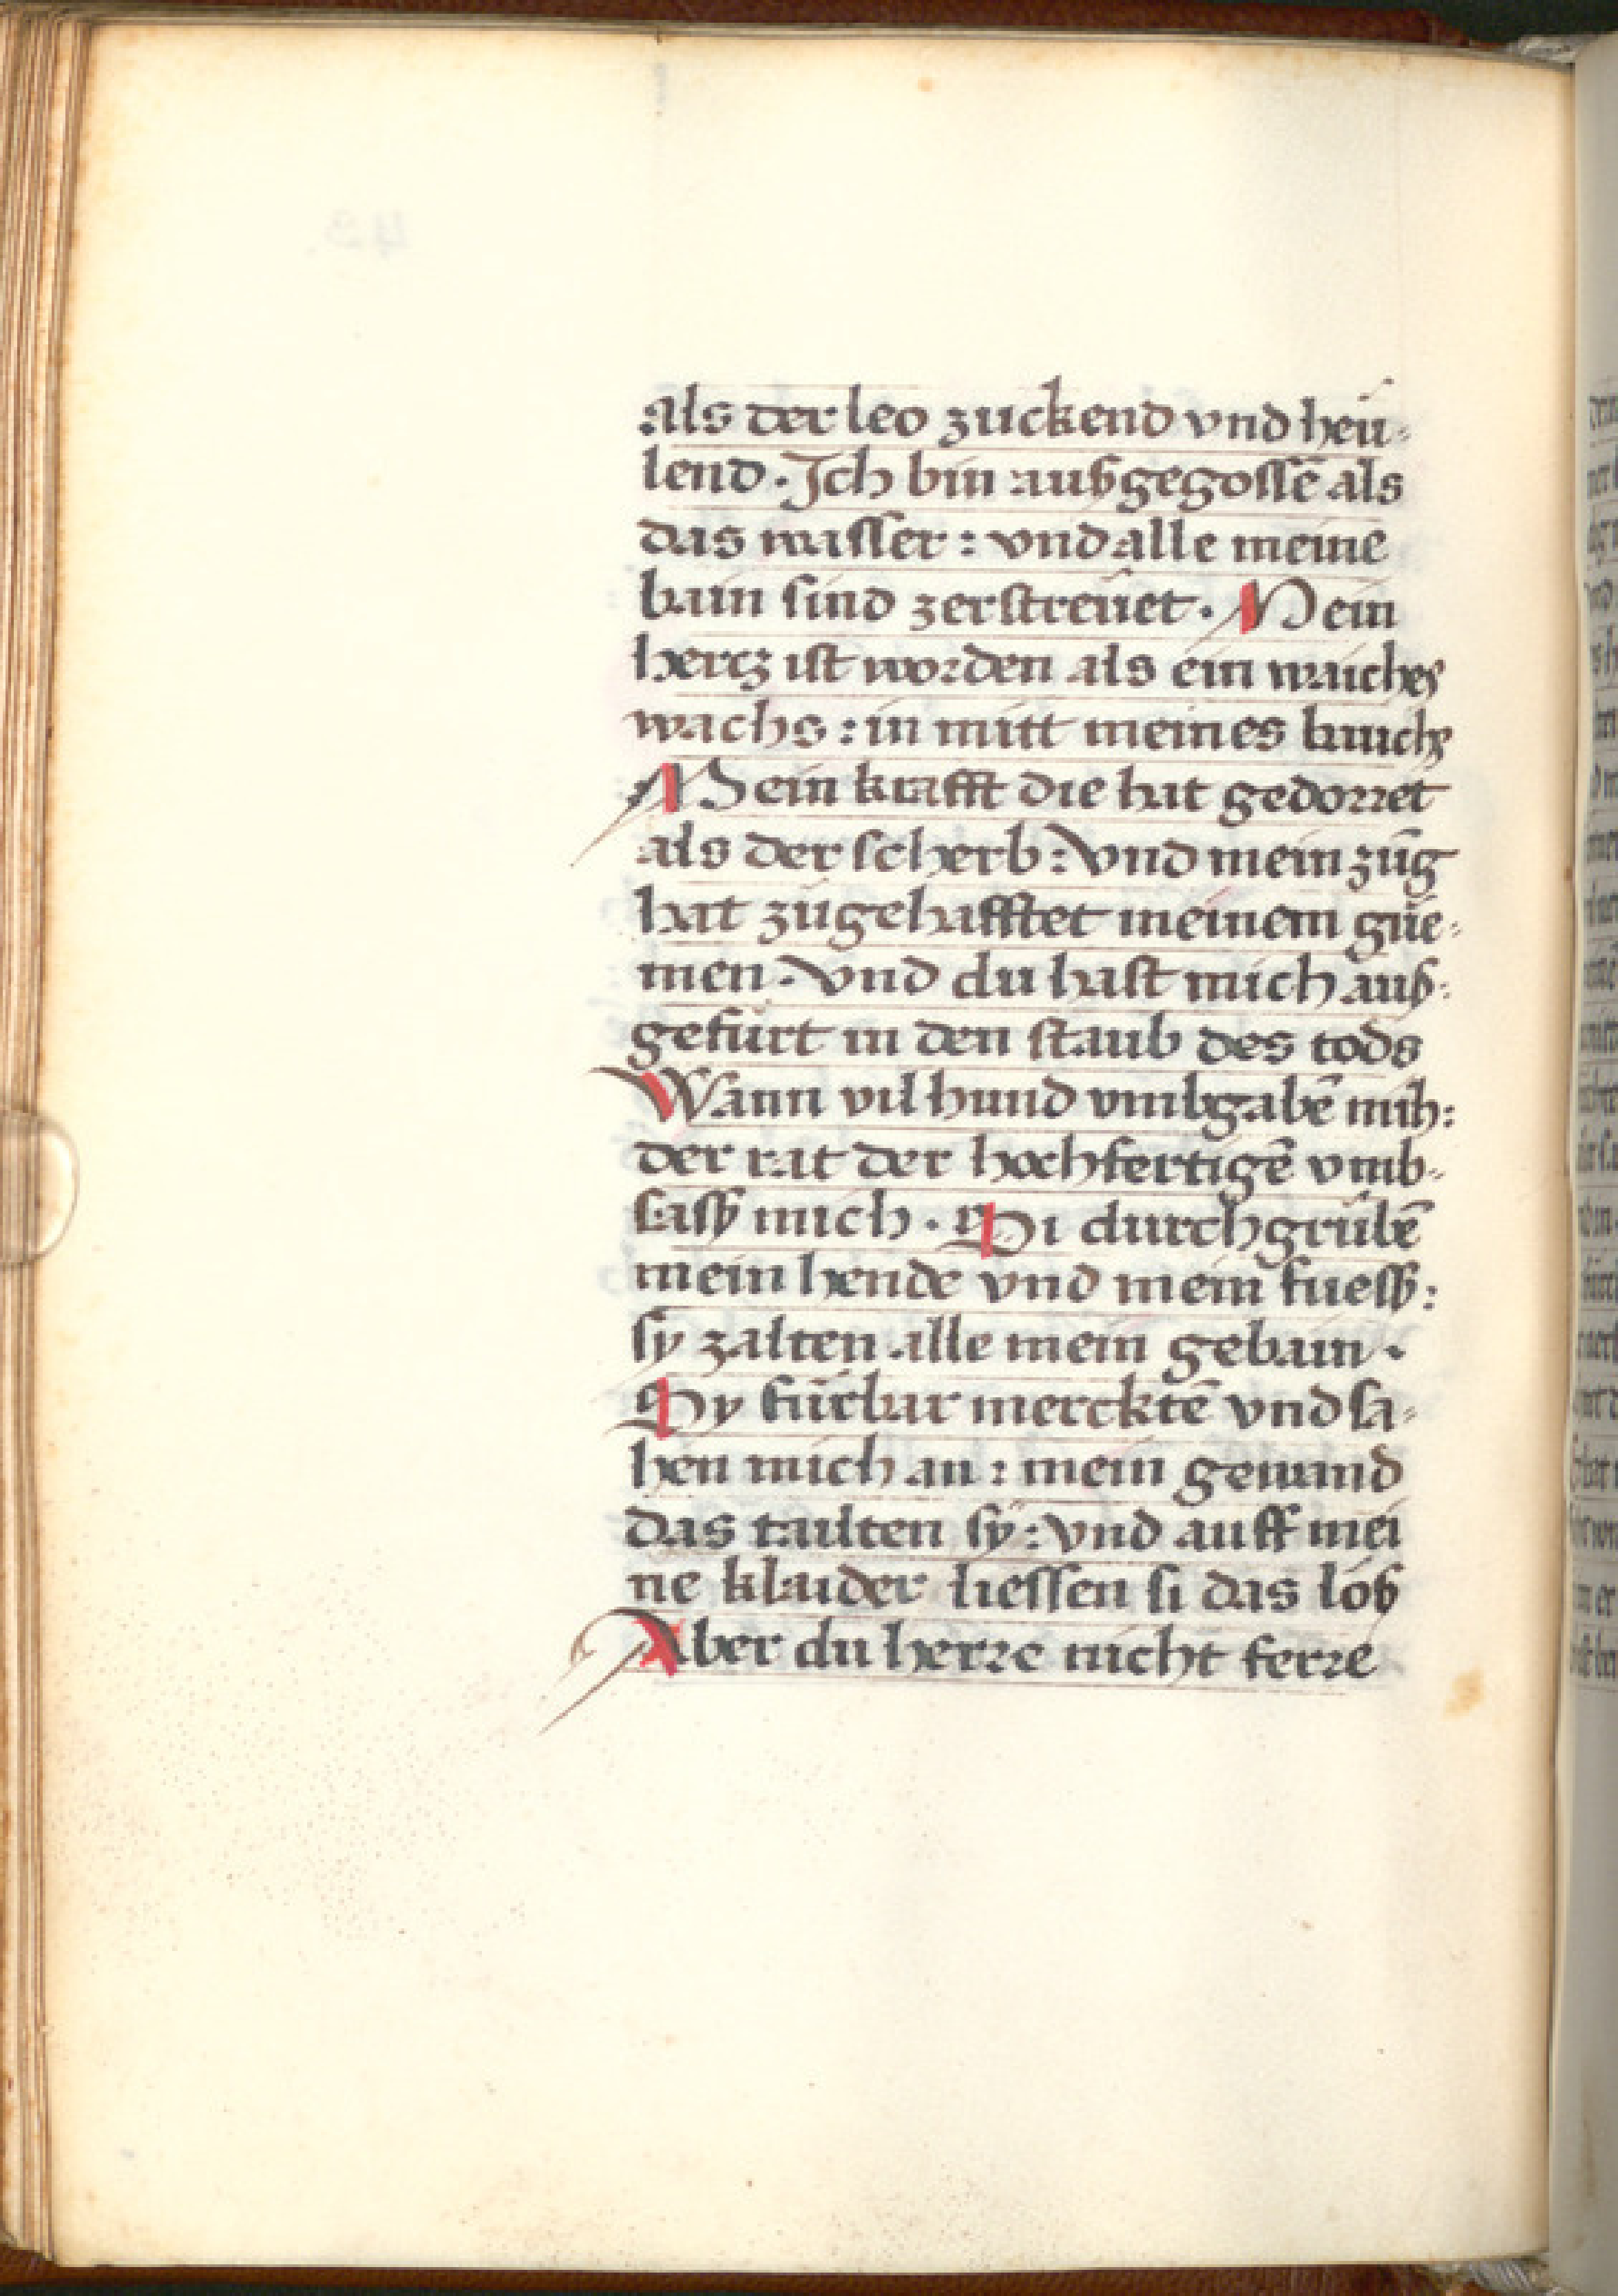 als der leo zuckend vnd heü⸗
lend · Ich bin außgegossē als
das wasser : vnd alle meine
bain sind zerstreüet · Mein
hercz ist worden als ein waiches
wachs : in mitt meines bauchs
Mein krafft die hat gedorret
als der scherb : vnd mein zūg
hat zūgehafftet meinem güe⸗
men · vnd du hast mich auß⸗
gefürt in den staub des tods
Wann vil hund vmbgabē mih :
der rat der hochfertigē vmb⸗
sasß mich · Si durchgrūbē
mein hende vnd mein füesß :
sy zalten alle mein gebain ·
Sy fürbar mercktē vnd sa⸗
hen mich an : mein gewand
das tailten sy : vnd auff mei
ne klaider liessen si das lōß
Aber du herre nicht ferre